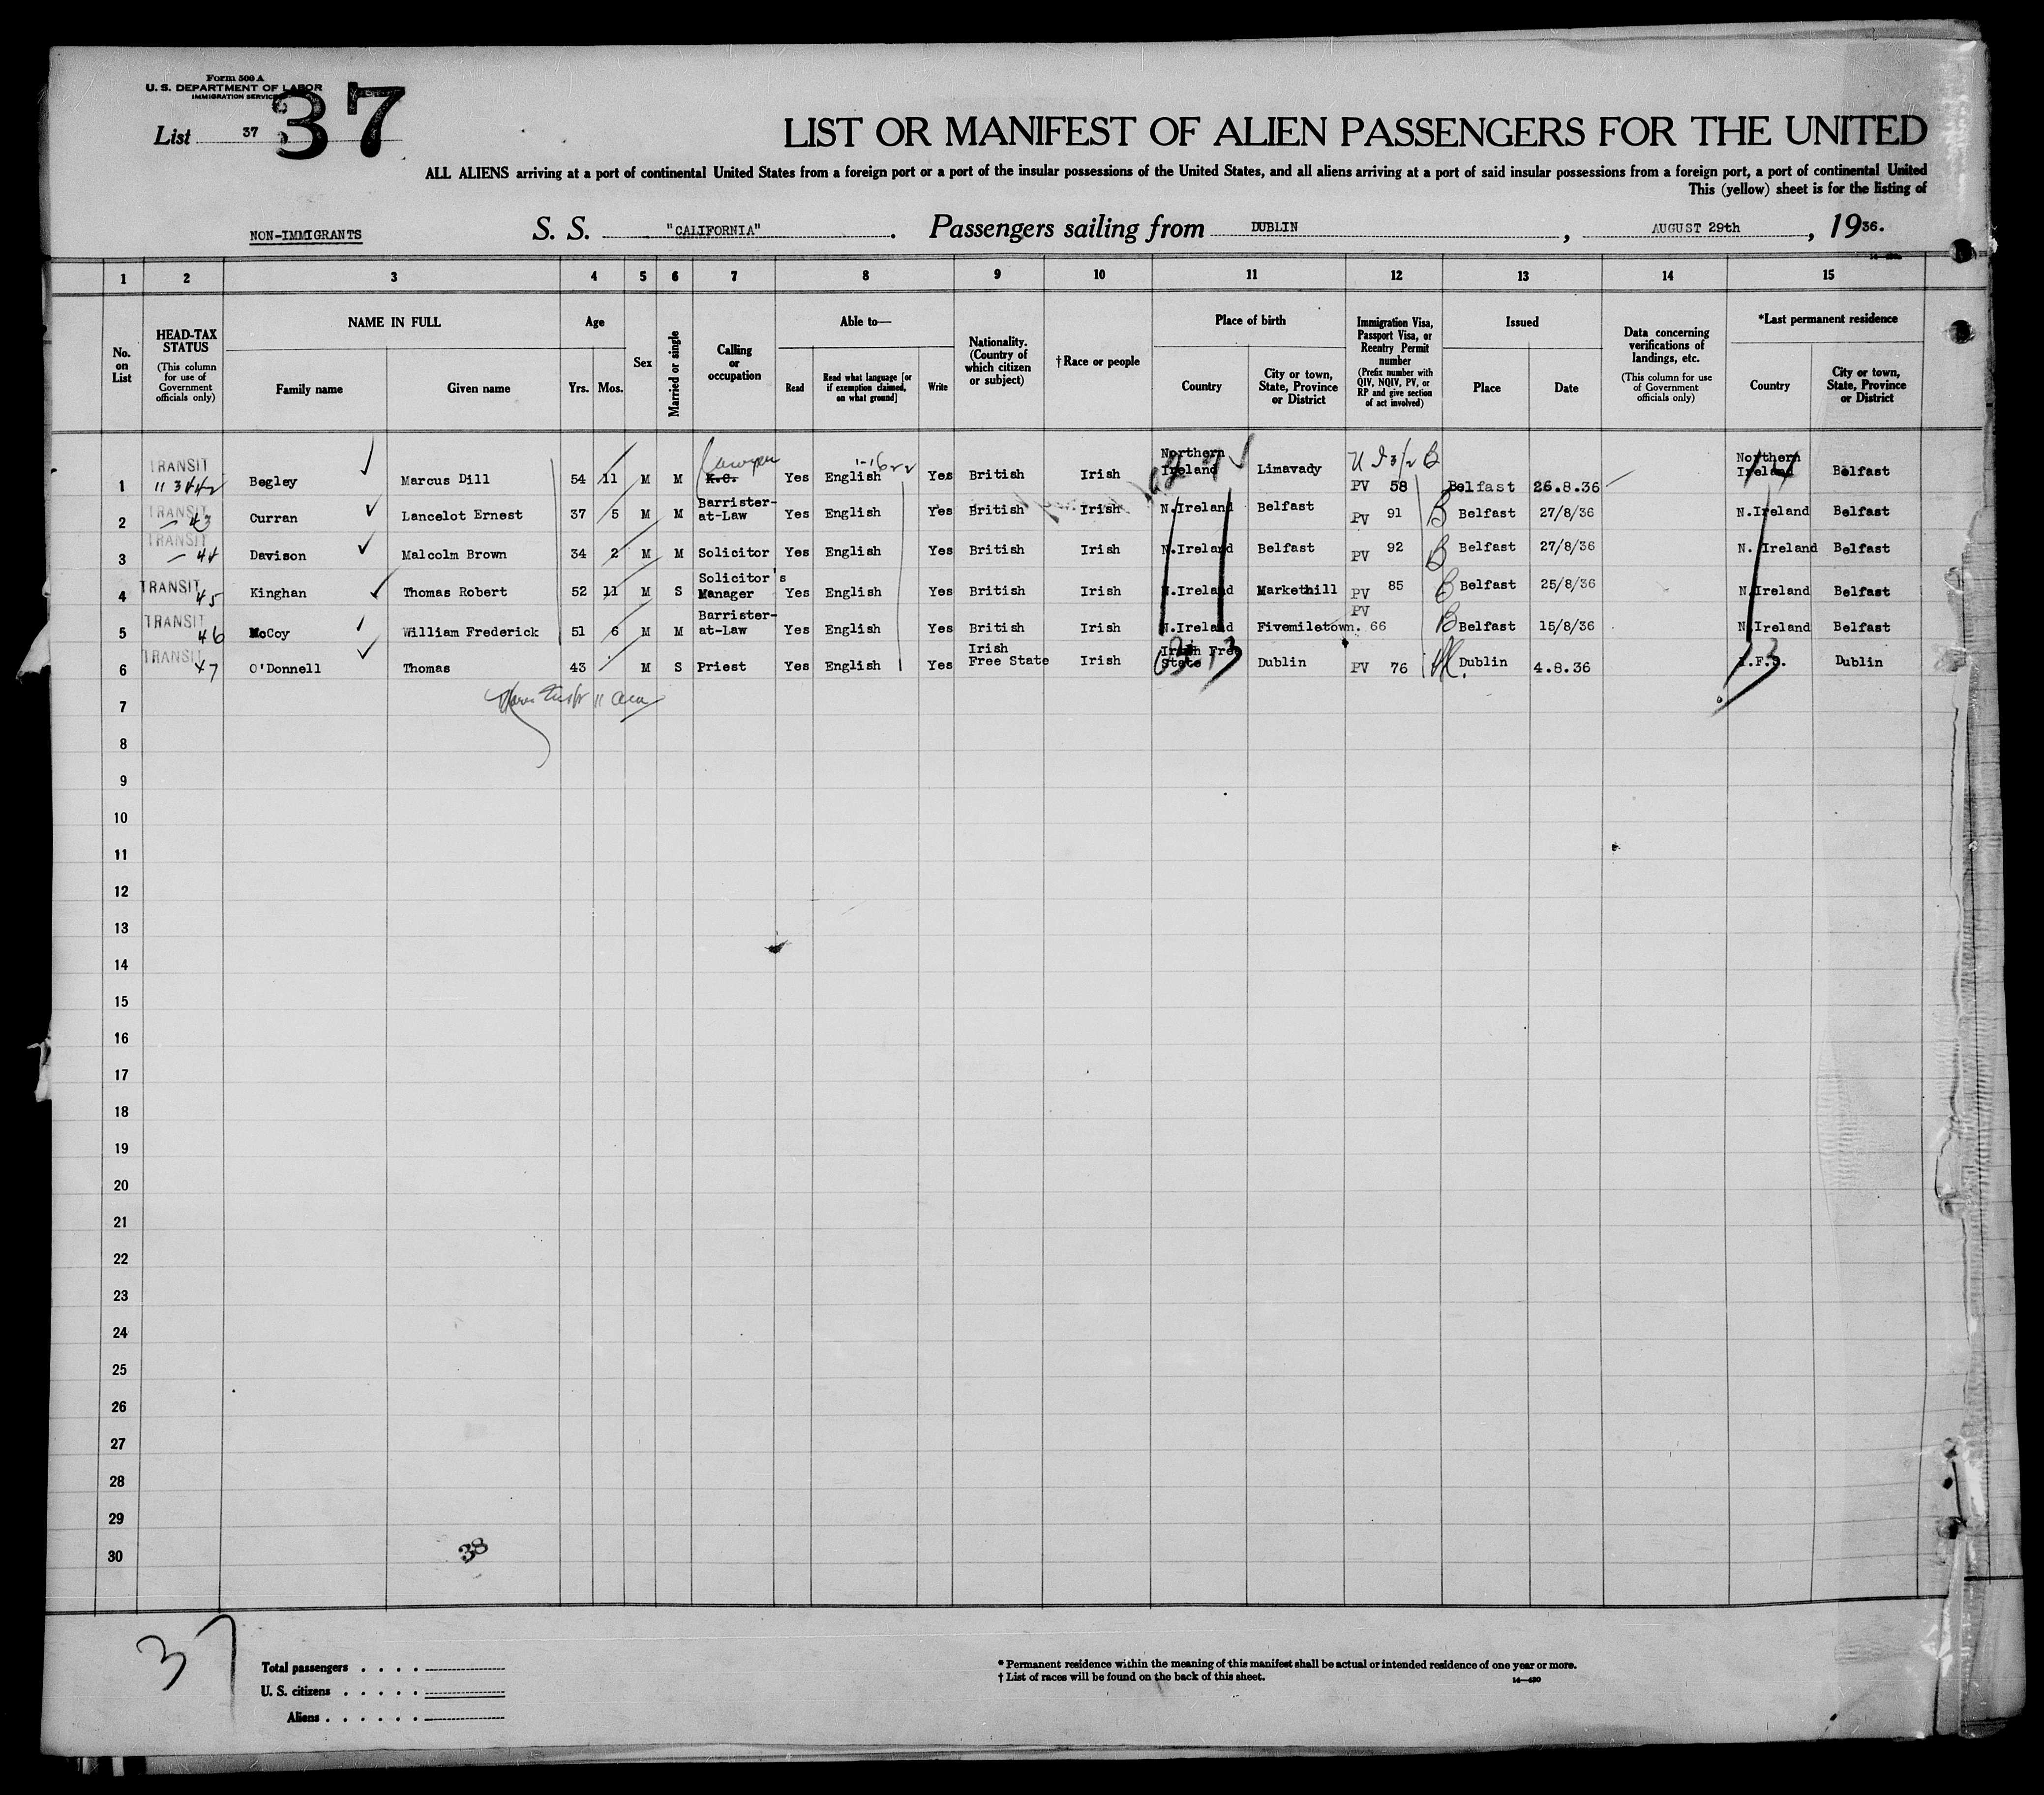 Form 500 A
U. S. DEPARTMENT OF LABOR
IMMIGRATION SERVICE
37
List 37
LIST OR MANIFEST OF ALIEN PASSENGERS FOR THE UNITED
ALL ALIENS arriving at a port of continental United States from a foreign port or a port of the insular possessions of the United States, and all aliens arriving at a port of said insular possessions from a foreign port, a port of continental United
This (yellow) sheet is for the listing of
NON-IMMIGRANTS S. S. "CALIFORNIA". Passengers sailing from DUBLIN, AUGUST 29th, 1936.
1 2 3 4 5 6 7 8 9 10 11 12 13 14 15
No. on List
HEAD-TAX STATUS
(This column for use of Government officials only)
NAME IN FULL
Family name Given name
Age
Yrs. Mos.
Sex
Married or single
Calling or occupation
Able to—
Read
Read what language [or if exemption claimed, on what ground]
Write
Nationality. (Country of which citizen or subject)
†Race or people
Place of birth
Country
City or town, State, Province or District
Immigration Visa, Passport Visa, or Reentry Permit number
(Prefix number with QIV, NQIV, PV, or RP and give section of act involved)
Issued
Place Date
Data concerning verifications of landings, etc.
(This column for use of Government officials only)
*Last permanent residence
Country
City or town, State, Province or District
1 TRANSIT Begley Marcus Dill 54 11 M M K.C. Lawyer Yes English Yes British Irish Northern Ireland Limavady PV 58 Belfast 26.8.36 Northern Ireland Belfast
2 TRANSIT 43 Curran Lancelot Ernest 37 5 M M Barrister-at-Law Yes English Yes British Irish N.Ireland Belfast PV 91 B Belfast 27/8/36 N.Ireland Belfast
3 TRANSIT 44 Davison Malcolm Brown 34 2 M M Solicitor Yes English Yes British Irish N.Ireland Belfast PV 92 B Belfast 27/8/36 N. Ireland Belfast
4 TRANSIT 45 Kinghan Thomas Robert 52 11 M S Solicitor's Manager Yes English Yes British Irish N.Ireland Markethill PV 85 B Belfast 25/8/36 N.Ireland Belfast
5 TRANSIT 46 McCoy William Frederick 51 6 M M Barrister-at-Law Yes English Yes British Irish N.Ireland Fivemiletown. PV 66 B Belfast 15/8/36 N.Ireland Belfast
6 TRANSIT 47 O'Donnell Thomas 43 M S Priest Yes English Yes Irish Free State Irish Irish Free State Dublin PV 76 Dublin 4.8.36 I.F.S. Dublin
7
8
9
10
11
12
13
14
15
16
17
18
19
20
21
22
23
24
25
26
27
28
29
30
38
37
Total passengers
U. S. citizens
Aliens
* Permanent residence within the meaning of this manifest shall be actual or intended residence of one year or more.
† List of races will be found on the back of this sheet.
14—430